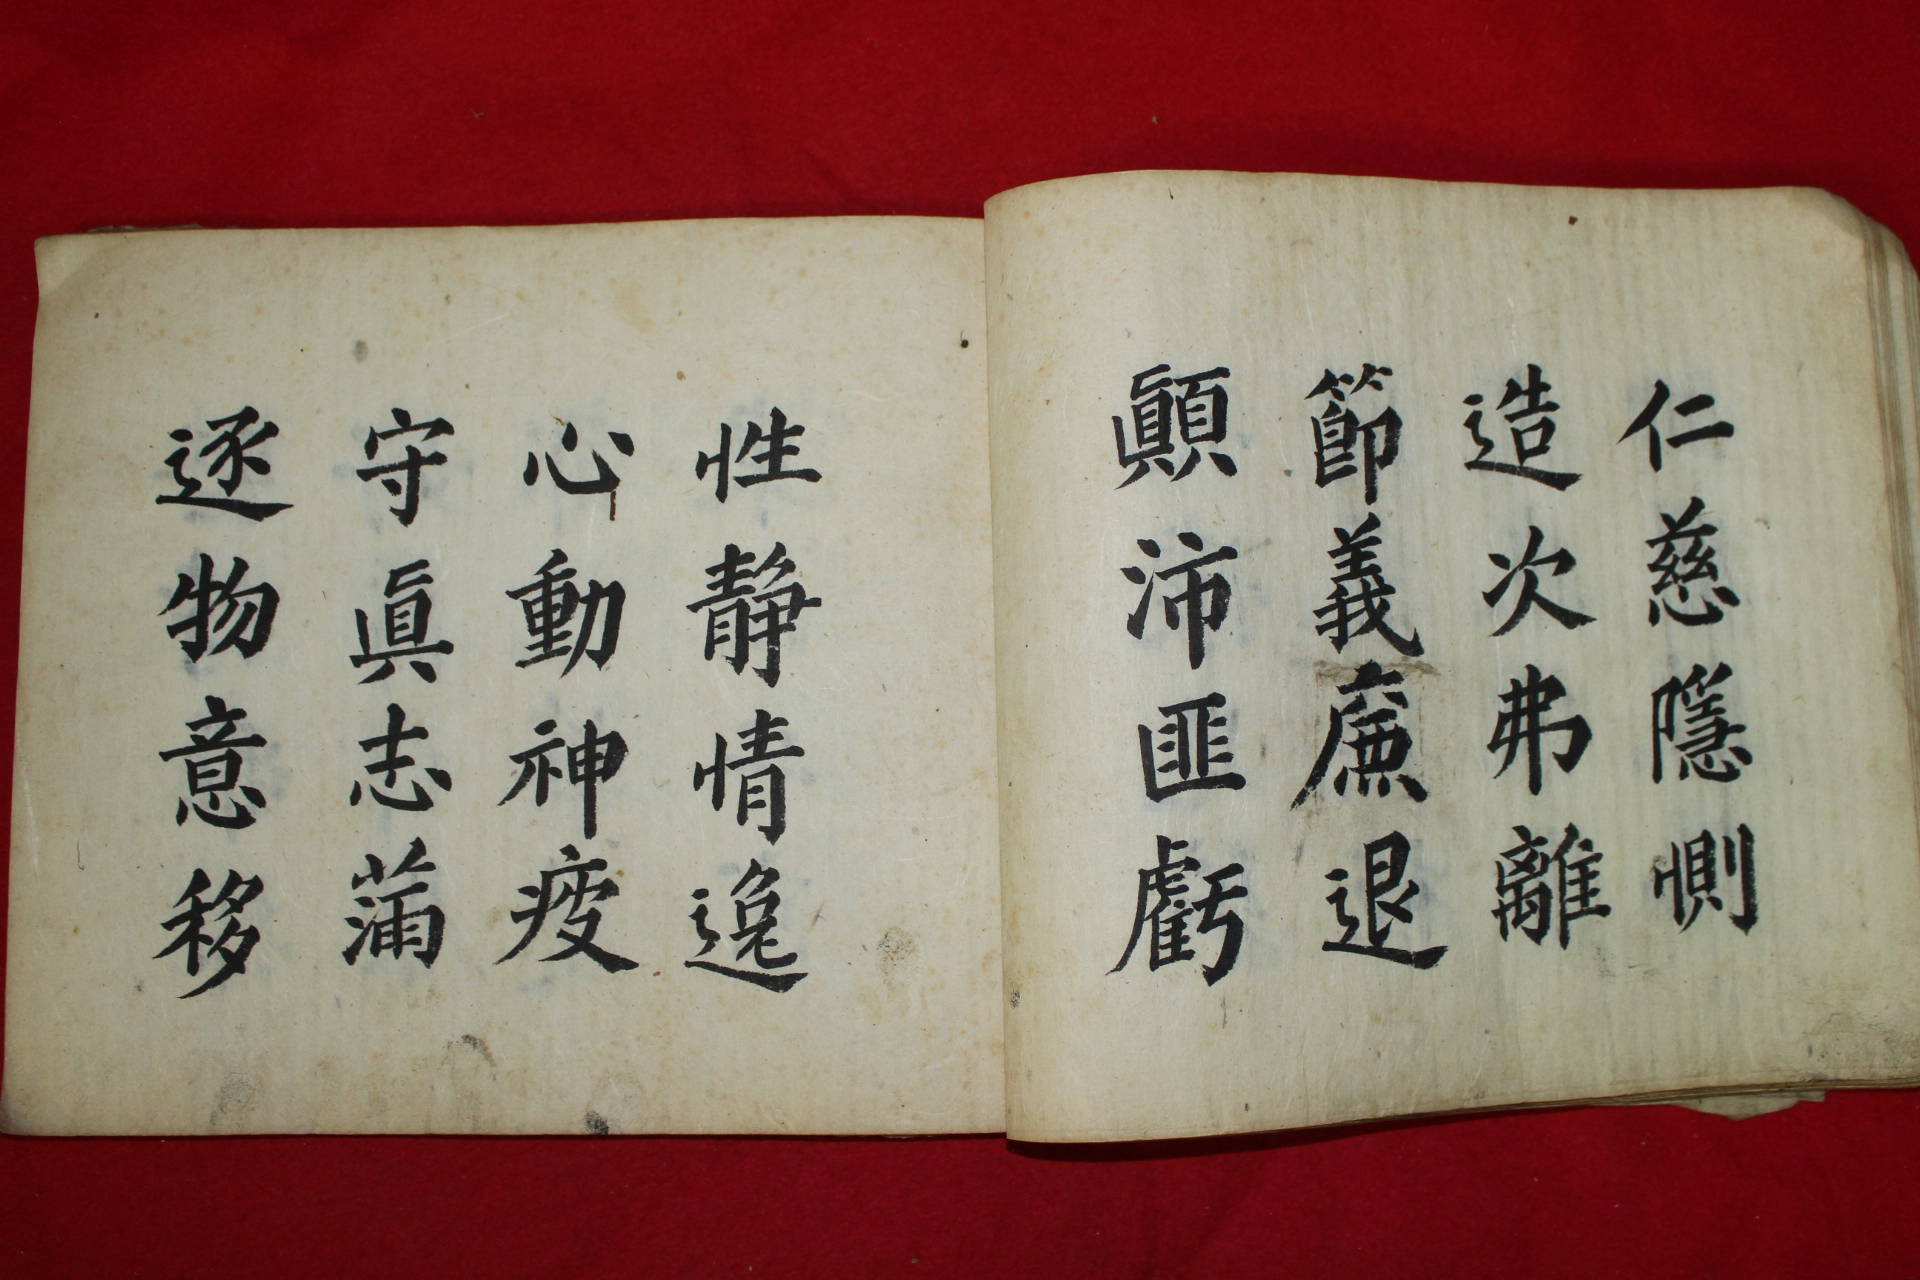 仁慈隱惻
造次弗離
節義廉退
顚沛匪虧
性靜情逸
心動神疲
守眞志滿
逐物意移